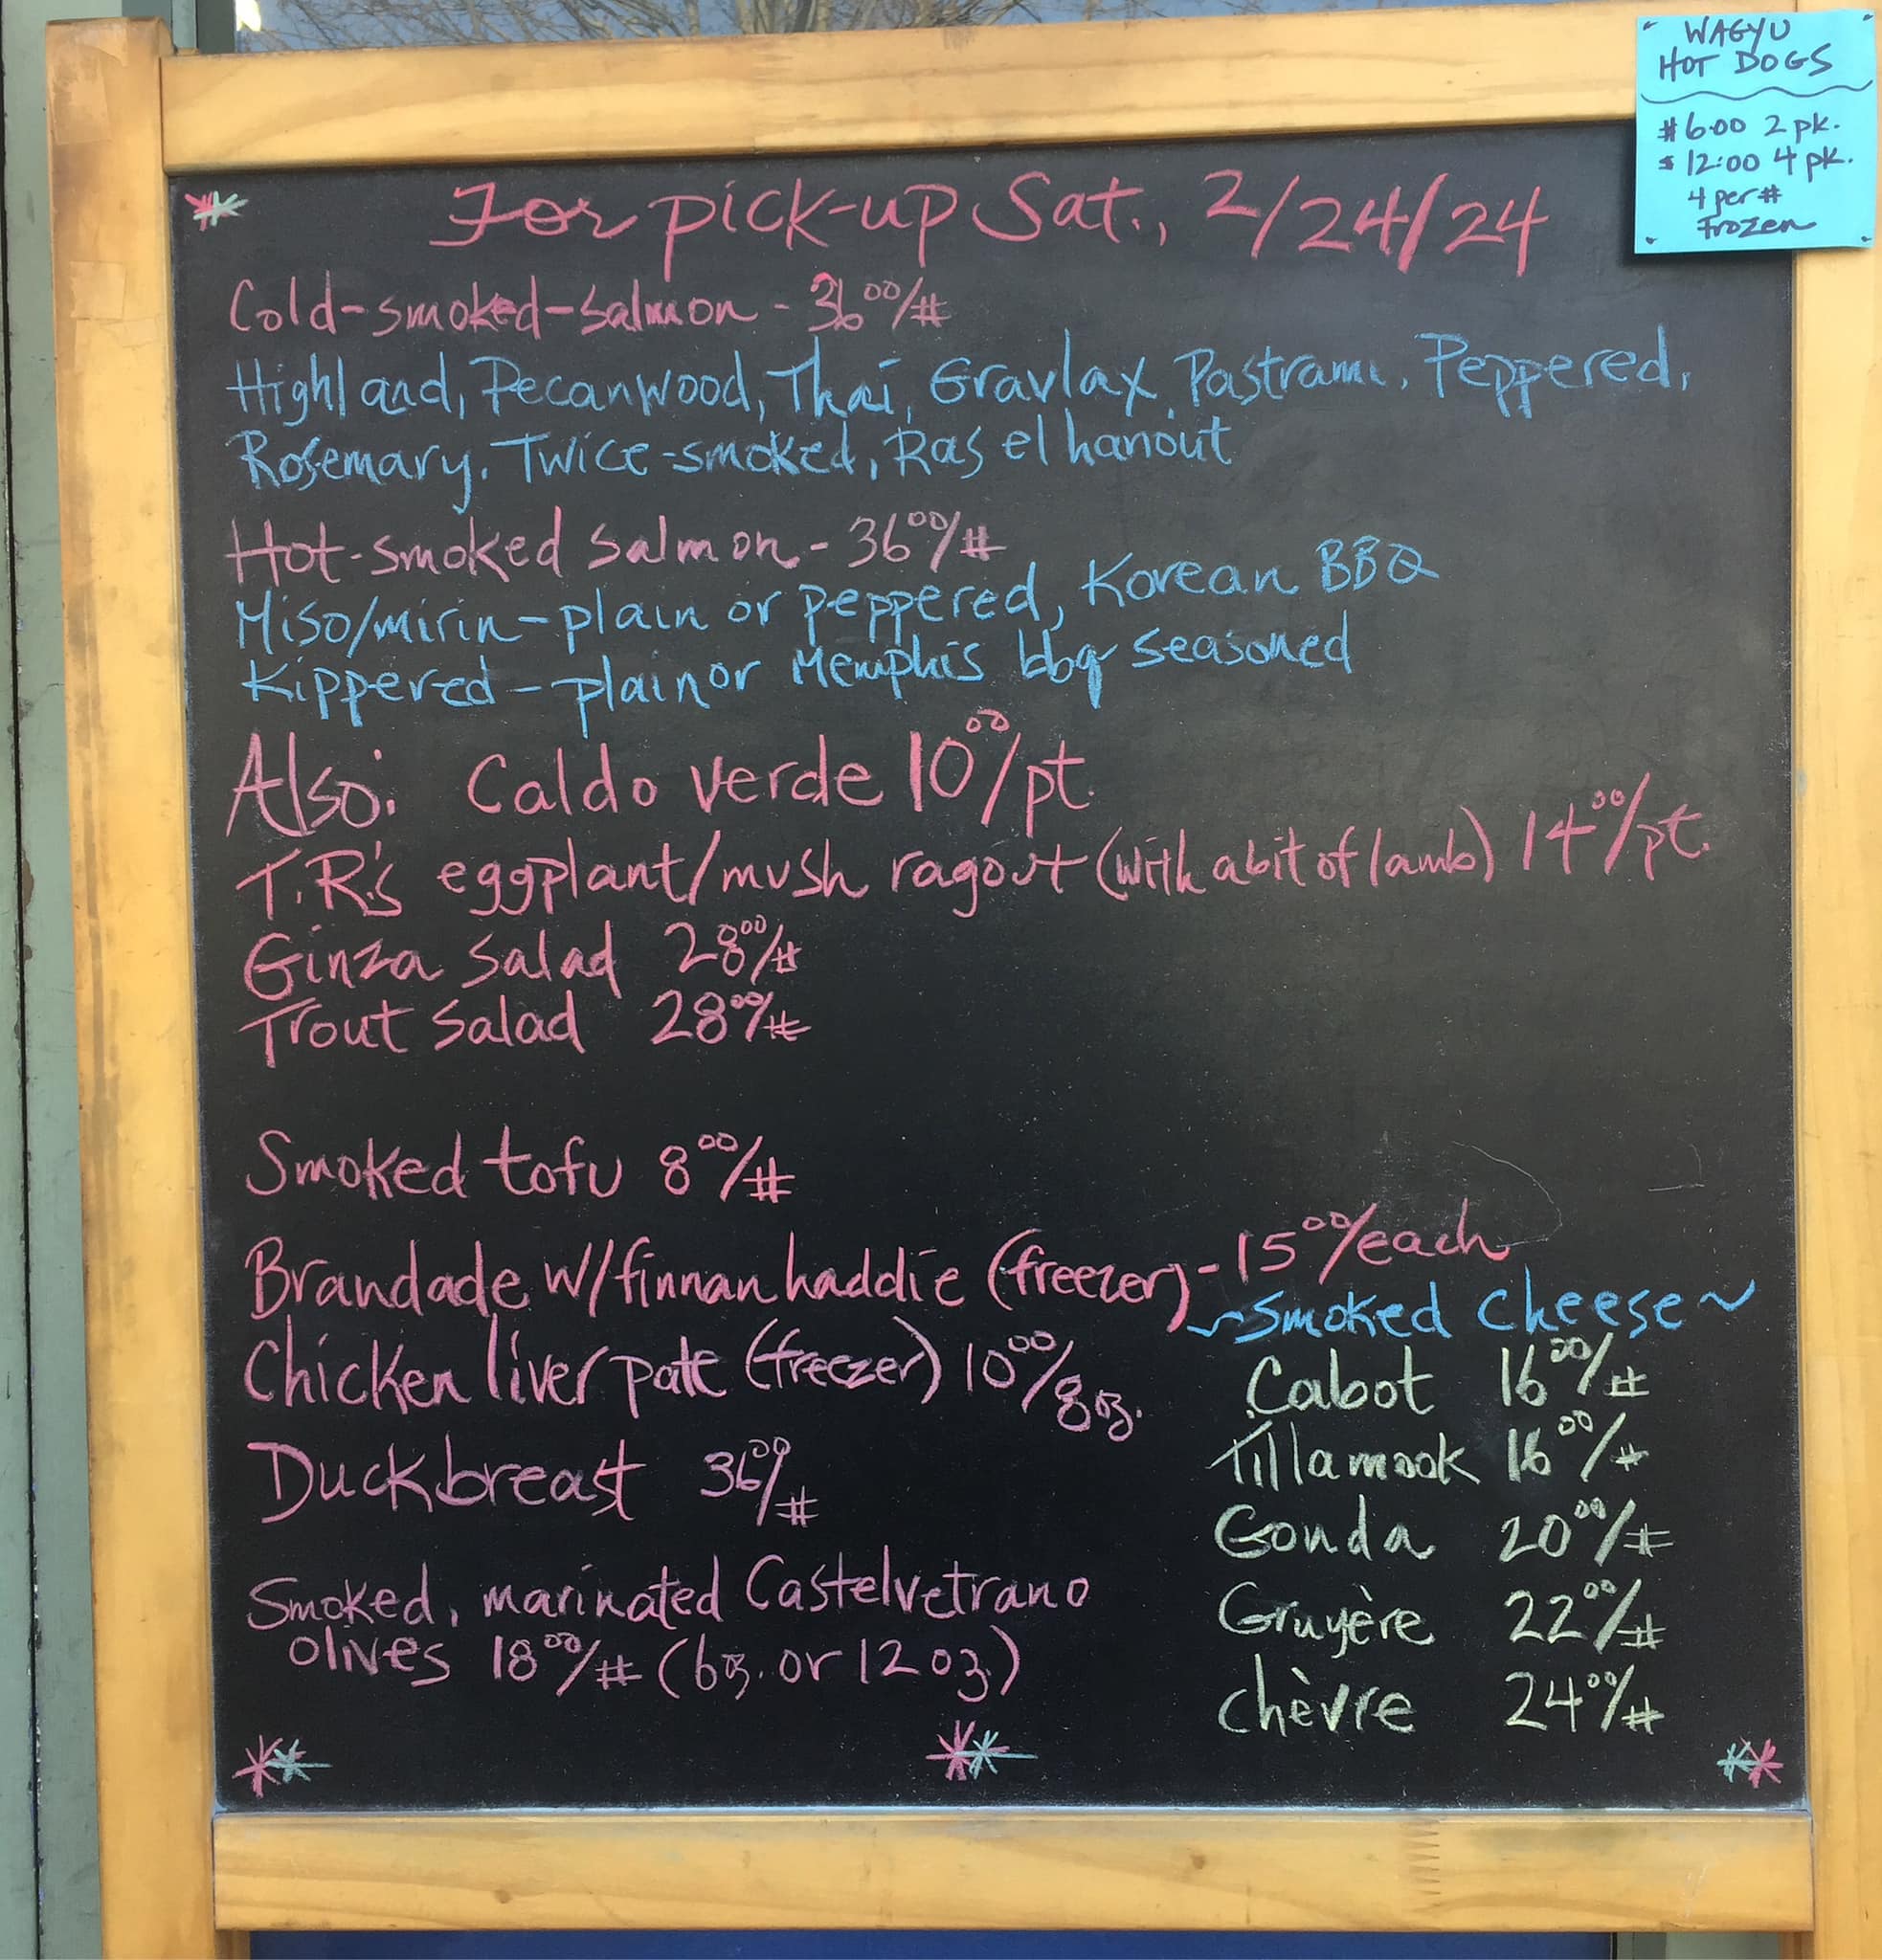 WAGYU
HOT DOGS
$6.00 2 pk.
$12:00 4 pk.
4 per #
Frozen
For pick-up Sat., 2/24/24
Cold-smoked-salmon - 36⁰⁰/#
Highland, Pecanwood, Thai, Gravlax, Pastrami, Peppered,
Rosemary, Twice-smoked, Ras el hanout
Hot-smoked salmon - 36⁰⁰/#
Miso/mirin-plain or peppered, Korean BBQ
Kippered - plain or Memphis bbq seasoned
Also: Caldo verde 10⁰⁰/pt.
T.R.'s eggplant/mush ragout (with a bit of lamb) 14⁰⁰/pt.
Ginza salad 28⁰⁰/#
Trout salad 28⁰⁰/#
Smoked tofu 8⁰⁰/#
Brandade w/finnan haddie (freezer) - 15⁰⁰/each
Chicken liver pate (freezer) 10⁰⁰/8 oz.
Duck breast 36⁰⁰/#
Smoked, marinated Castelvetrano
olives 18⁰⁰/# (6 oz. or 12 oz.)
~Smoked cheese~
Cabot 16⁰⁰/#
Tillamook 16⁰⁰/#
Gouda 20⁰⁰/#
Gruyère 22⁰⁰/#
chèvre 24⁰⁰/#